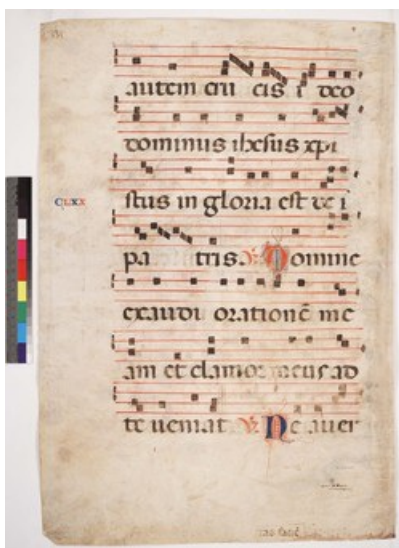 autem cru cis i deo
dominus ihesus xpi
CLXX
stus in gloria est de i
pa tris. V. Domine
exaudi orationē me
am et clamor meus ad
te ueniat V. Ne auer